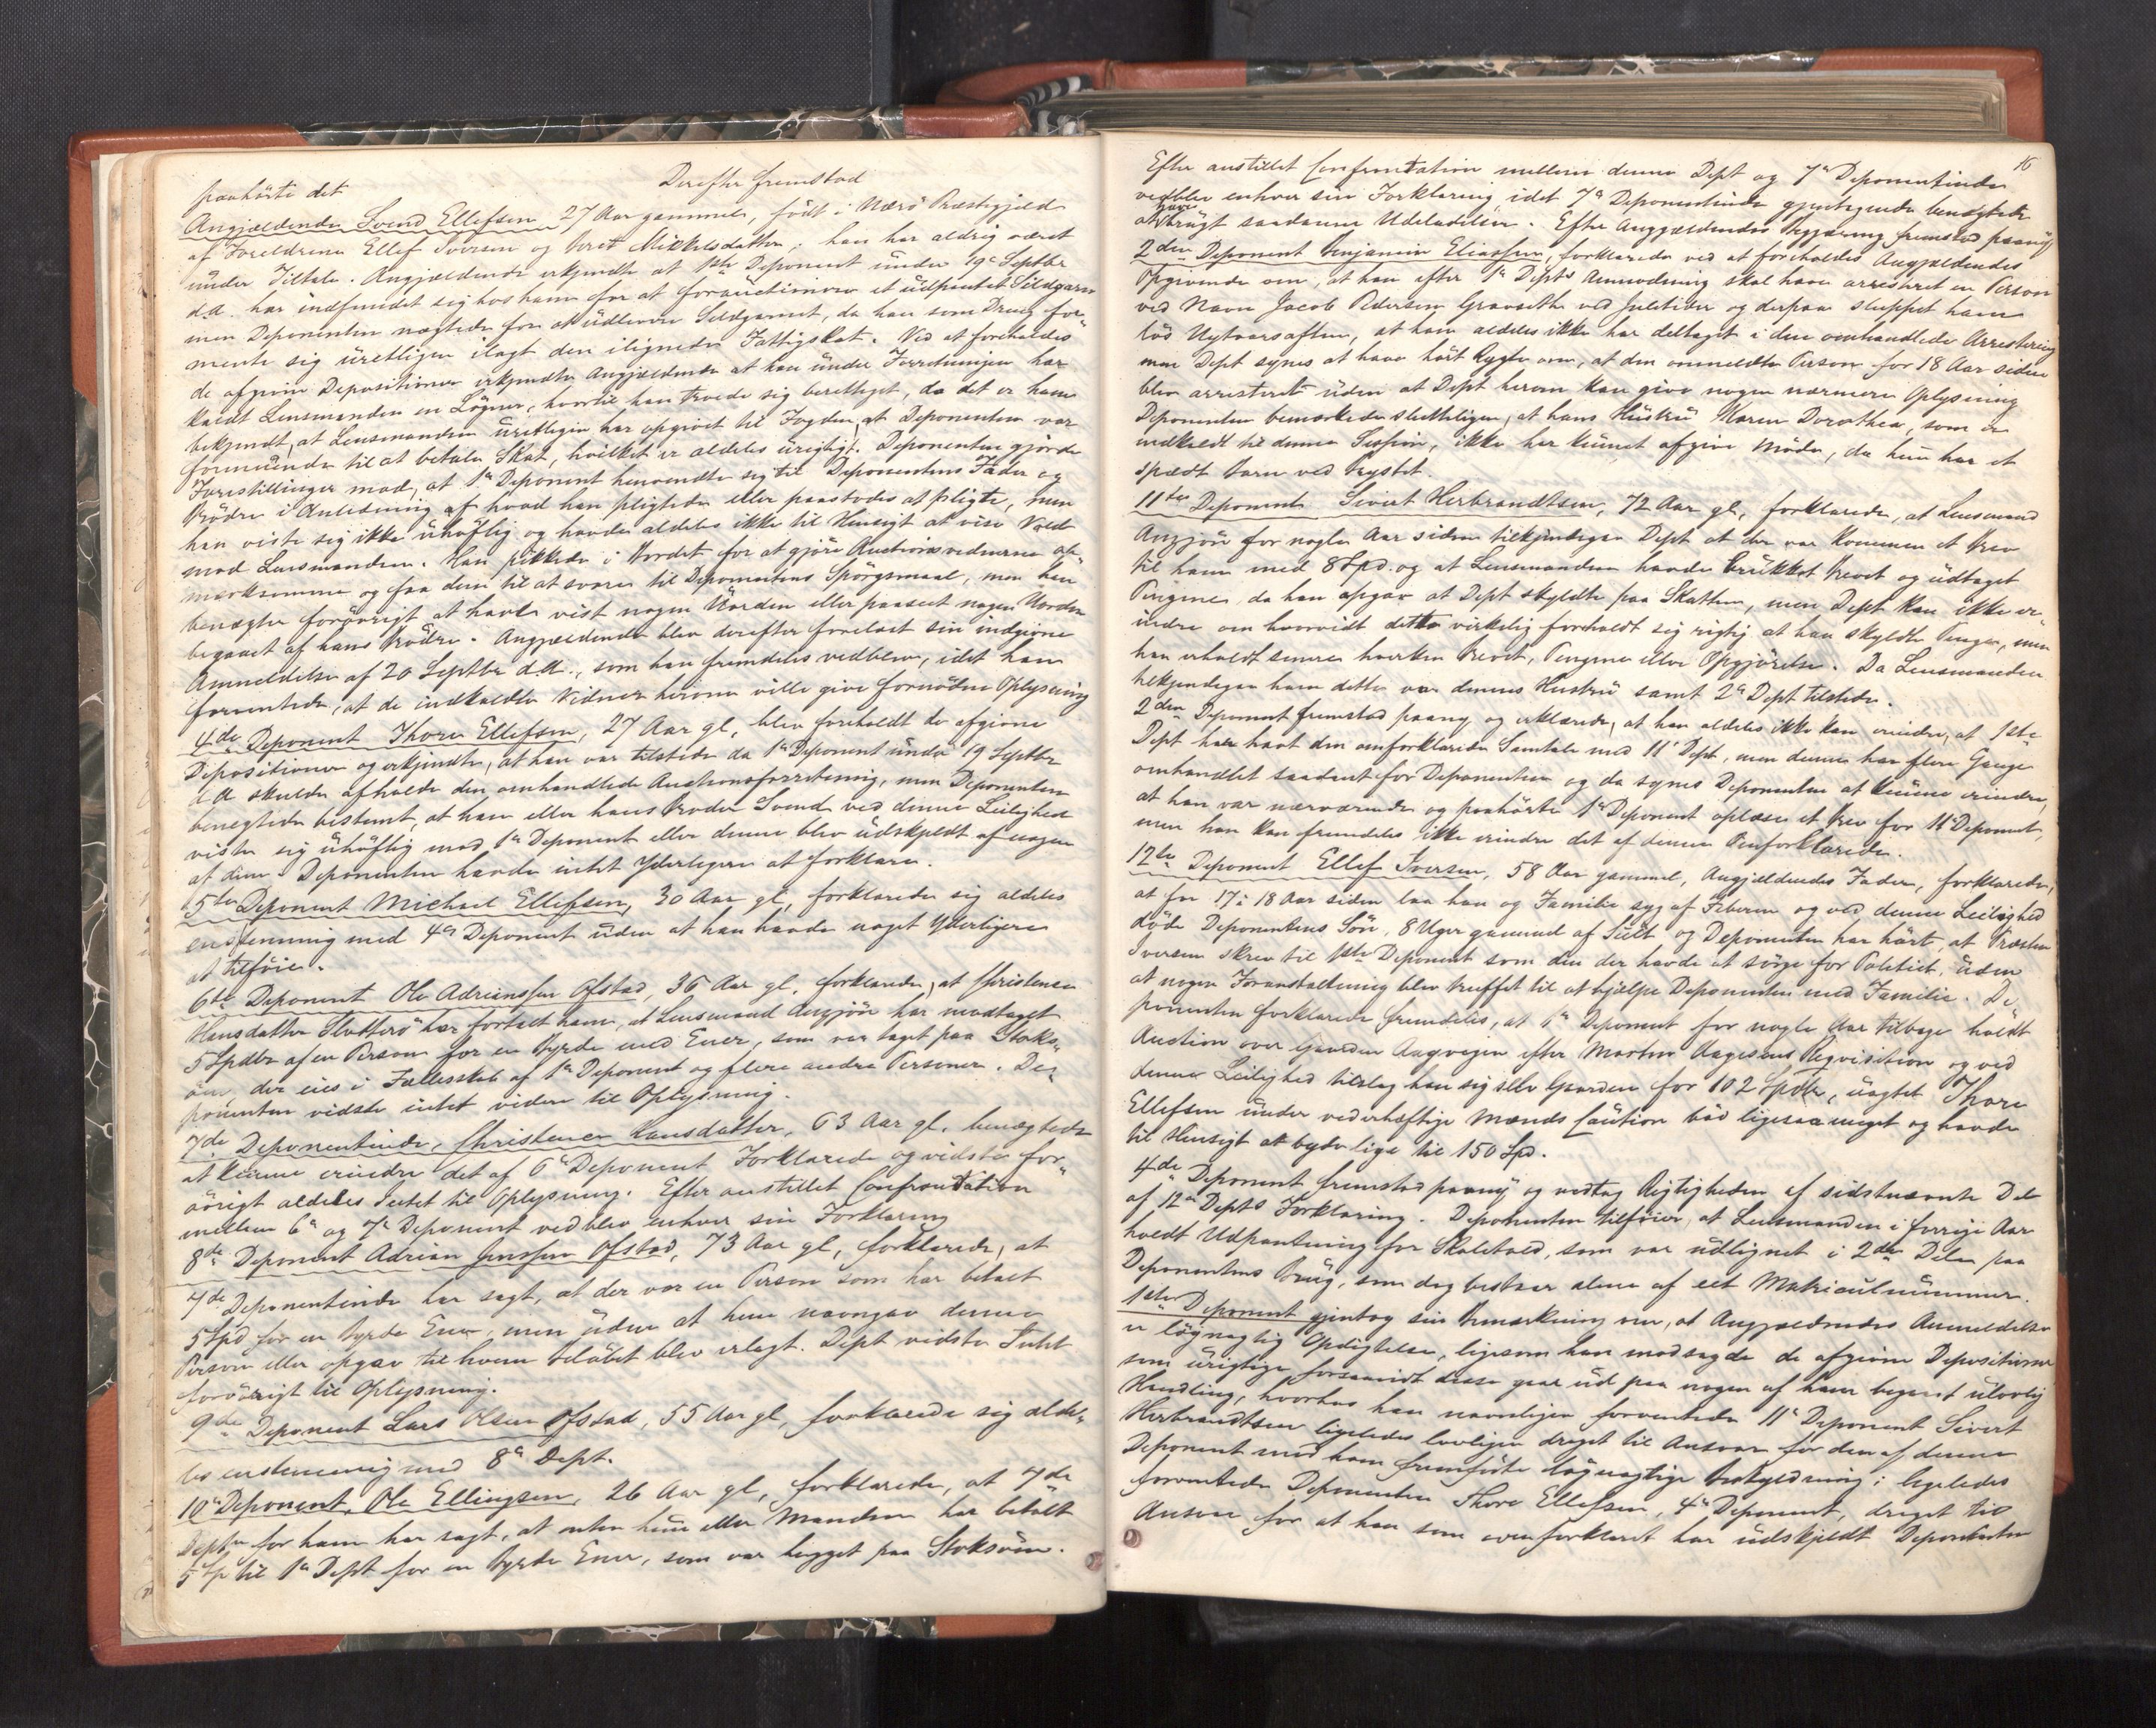 paahörte det Derefter fremstod
Angjældende Svend Ellefsen 27 Aar gammel, født i Nærö Præstegjeld
af Foreldrene Ellef Iversen og Beret Mikkelsdatter; han har aldrig været
under Tiltale. Angjældende erkjendte at 1ste Deponent under 19de Septbr
d.A. har indfundet sig hos ham for at forauctionere et udpantet Sildgarn
men Deponenten nægtede for at udlevere Sildgarnet, da han som Dreng for-
mente sig uretteligen ilagt den ilignede Fattigskat. Ved at foreholdes
de afgivne Depositioner erkjendte Angjældende at han under Forretningen har
kaldt Lensmanden en Løgner, hvortil han troede sig berettiget, da det er ham
bekjendt, at Lensmanden uretteligen har opgivet til Fogden, at Deponenten var
formuende til at betale Skat, hvilket er aldeles urigtigt. Deponenten gjorde
Forestillinger mod, at 1ste Deponent henvendte sig til Deponentens Fader og
Brödre i Anledning af hvad han pligtede eller paastodes at pligte, men
han viste sig ikke uhöflig og havde aldeles ikke til Hensigt at vise Vold
mod Lensmanden. Han pikkede i Bordet for at gjöre Auctionsvidnerne op-
mærksomme og faa dem til at svare til Deponentens Spörgsmaal, men han
benægter forövrigt at have vist nogen Uorden eller paaseet nogen Uorden
begaaet af hans Brödre. Angjældende blev derefter forelæst sin indgivne
Anmeldelse af 20 Septbr d.A., som han fremdeles vedblev, idet han
forventede, at de indkaldte Vidner herom ville give fornöden Oplysning
4de Deponent Thore Ellefsen, 27 Aar gl, blev foreholdt de afgivne
Depositioner og erkjendte, at han var tilstede da 1ste Deponent under 19 Septbr
d.A skulde afholde den omhandlede Auctionsforretning, men Deponenten
benegtede bestemt, at han eller hans Broder Svend ved denne Leilighed
viste sig uhöflig mod 1ste Deponent eller denne blev udskjeldt af nogen
af dem. Deponenten havde intet Yderligere at forklare.
5te Deponent Michael Ellefsen, 30 Aar gl, forklarede sig aldeles
enstemmig med 4de Deponent uden at han havde noget Yderligere
at tilföie.
6te Deponent Ole Adrianssen Ofstad, 36 Aar gl. forklarede, at Christence
Hansdatter har fortalt ham, at Lensmand Angjör har modtaget
5 Spdlr af en Person for en Byrde med Ener, som var taget paa Stoks-
öen, der eies i Fællesskab af 1ste Deponent og flere andre Personer. De-
ponenten vidste intet videre til Oplysning.
7de Deponentinde, Christence Hansdatter, 63 Aar gl. benægtede
at kunne erindre det af 6te Deponent Forklarede og vidste for-
övrigt aldeles Intet til Oplysning. Efter anstillet Confrontation
mellem 6te og 7de Deponent vedblev enhver sin Forklaring
8de Deponent Adrian Jenssen Ofstad, 73 Aar gl, forklarede, at
7de Deponentinde har sagt, at der var en Person som har betalt
5 Spd for en Byrde Ener, men uden at hun navngav denne
Person eller opgav til hvem Belöbet blev erlagt. Dept vidste Intet
forövrigt til Oplysning.
9de Deponent Lars Olsen Ofstad, 55 Aar gl, forklarede sig alde-
les enstemmig med 8de Dept.
10de Deponent, Ole Ellingsen, 26 Aar gl, forklarede, at 7de
Deptn for ham har sagt, at enten hun eller Manden har betalt
5 Sp til 1ste Dept for en Byrde Ener, som var hugget paa Stoksöen.
16
Efter anstillet Confrontation mellem denne Dept og 7de Deponentinde
vedblev enhver sin Forklaring, idet 7de Deponentinde gjentagende benægtede
at have brugt saadanne Udeladelser. Efter Angjældendes Begjæring fremstod paany
2den Deponent Benjamin Eliassen, forklarede ved at foreholdes Angjældendes
Opgivende om, at han efter 1ste Depts Anmodning skal have arresteret en Person
ved Navn Jacob Pedersen Gravseth ved Juletider og derpaa sluppet ham
lös Nytaarsaften, at han aldeles ikke har deltaget i den omhandlede Arrestering
men Dept synes at have hört Rygte om, at den ommeldte Person for 18 Aar siden
blev arresteret uden at Dept herom kan give nogen nærmere Oplysning
Deponenten bemærkede slutteligen, at hans Hustru Maren Dorothea, som er
indkaldt til denne Session, ikke har kunnet afgive Möde, da hun har et
spædt Barn ved Brystet.
11te Deponent Sivert Herbrandtsen, 72 Aar gl, forklarede, at Lensmand
Angjör for nogle Aar siden tilkjendegav Dept at der var kommen et Brev
til ham med 8 Spd. og at Lensmanden havde brukket Brevet og udtaget
Pengene, da han opgav at Dept skyldte paa Skatten, men Dept kan ikke er-
indre om hvorvidt dette virkelig forholdt sig rigtig at han skyldte Penge, men
han erholdt senere hverken Brevet, Pengene eller Opgjörelse. Da Lensmanden
tilkjendegav ham dette var dennes Hustru samt 2den Dept tilstede.
2den Deponent fremstod paany og erklærede, at han aldeles ikke kan erindre, at 1ste
Dept har havt den omforklarede Samtale med 11te Dept, men denne har flere Gange
omhandlet saadant for Deponenten og da synes Deponenten at kunne erindre,
at han var nærværende og paahörte 1ste Deponent oplæse et Brev for 11te Deponent,
men han kan fremdeles ikke erindre det af denne Omforklarede.
12te Deponent Ellef Iversen, 58 Aar gammel, Angjældendes Fader, forklarede,
at for 17 à 18 Aar siden laa han og Familie syg af Feberen og ved denne Leilighed
döde Deponentens Sön, 8 Uger gammel af Sult og Deponenten har hört, at Præsten
Iversen skrev til 1ste Deponent som den der havde at sörge for Politiet, uden
at nogen Foranstaltning blev truffet til at hjælpe Deponenten med Familie. De-
ponenten forklarede fremdeles, at 1ste Deponent for nogle Aar tilbage holdt
Auction over Gaarden Aagvigen efter Morten Aagesens Reqvisition og ved
denne Leilighed tilslog han sig selv Gaarden for 102 Spdlr, uagtet Thore
Ellefsen under vederhæftige Mænds Caution böd ligesaameget og havde
til Hensigt at byde lige til 150 Spd.
4de Deponent fremstod paany og vedtog Rigtigheden af sidstnævnte Del
af 12te Depts Forklaring. Deponenten tilföier, at Lensmanden i forrige Aar
holdt Udpantning for Skoletold, som var udlignet i 2de Dele paa
Deponentens Brug, som dog bestaar alene af eet Matriculnummer.
1ste Deponent gjentog sin Bemærkning om, at Angjældendes Anmeldelse
er lögnagtig Opdigtelse, ligesom han modsagde de afgivne Depositioner
som urigtige forsaavidt disse gaar ud paa nogen af ham begaaet ulovlig
Handling, hvorhos han navnligen forventede 11te Deponent Sivert
Herbrandtsen ligeledes lovligen draget til Ansvar for den af denne
Deponent mod ham fremförte lögnagtige Beskyldning; ligeledes
forventede Deponenten Thore Ellefsen, 4de Deponent, draget til
Ansvar for at han som ovenforklaret har udskjeldt Deponenten